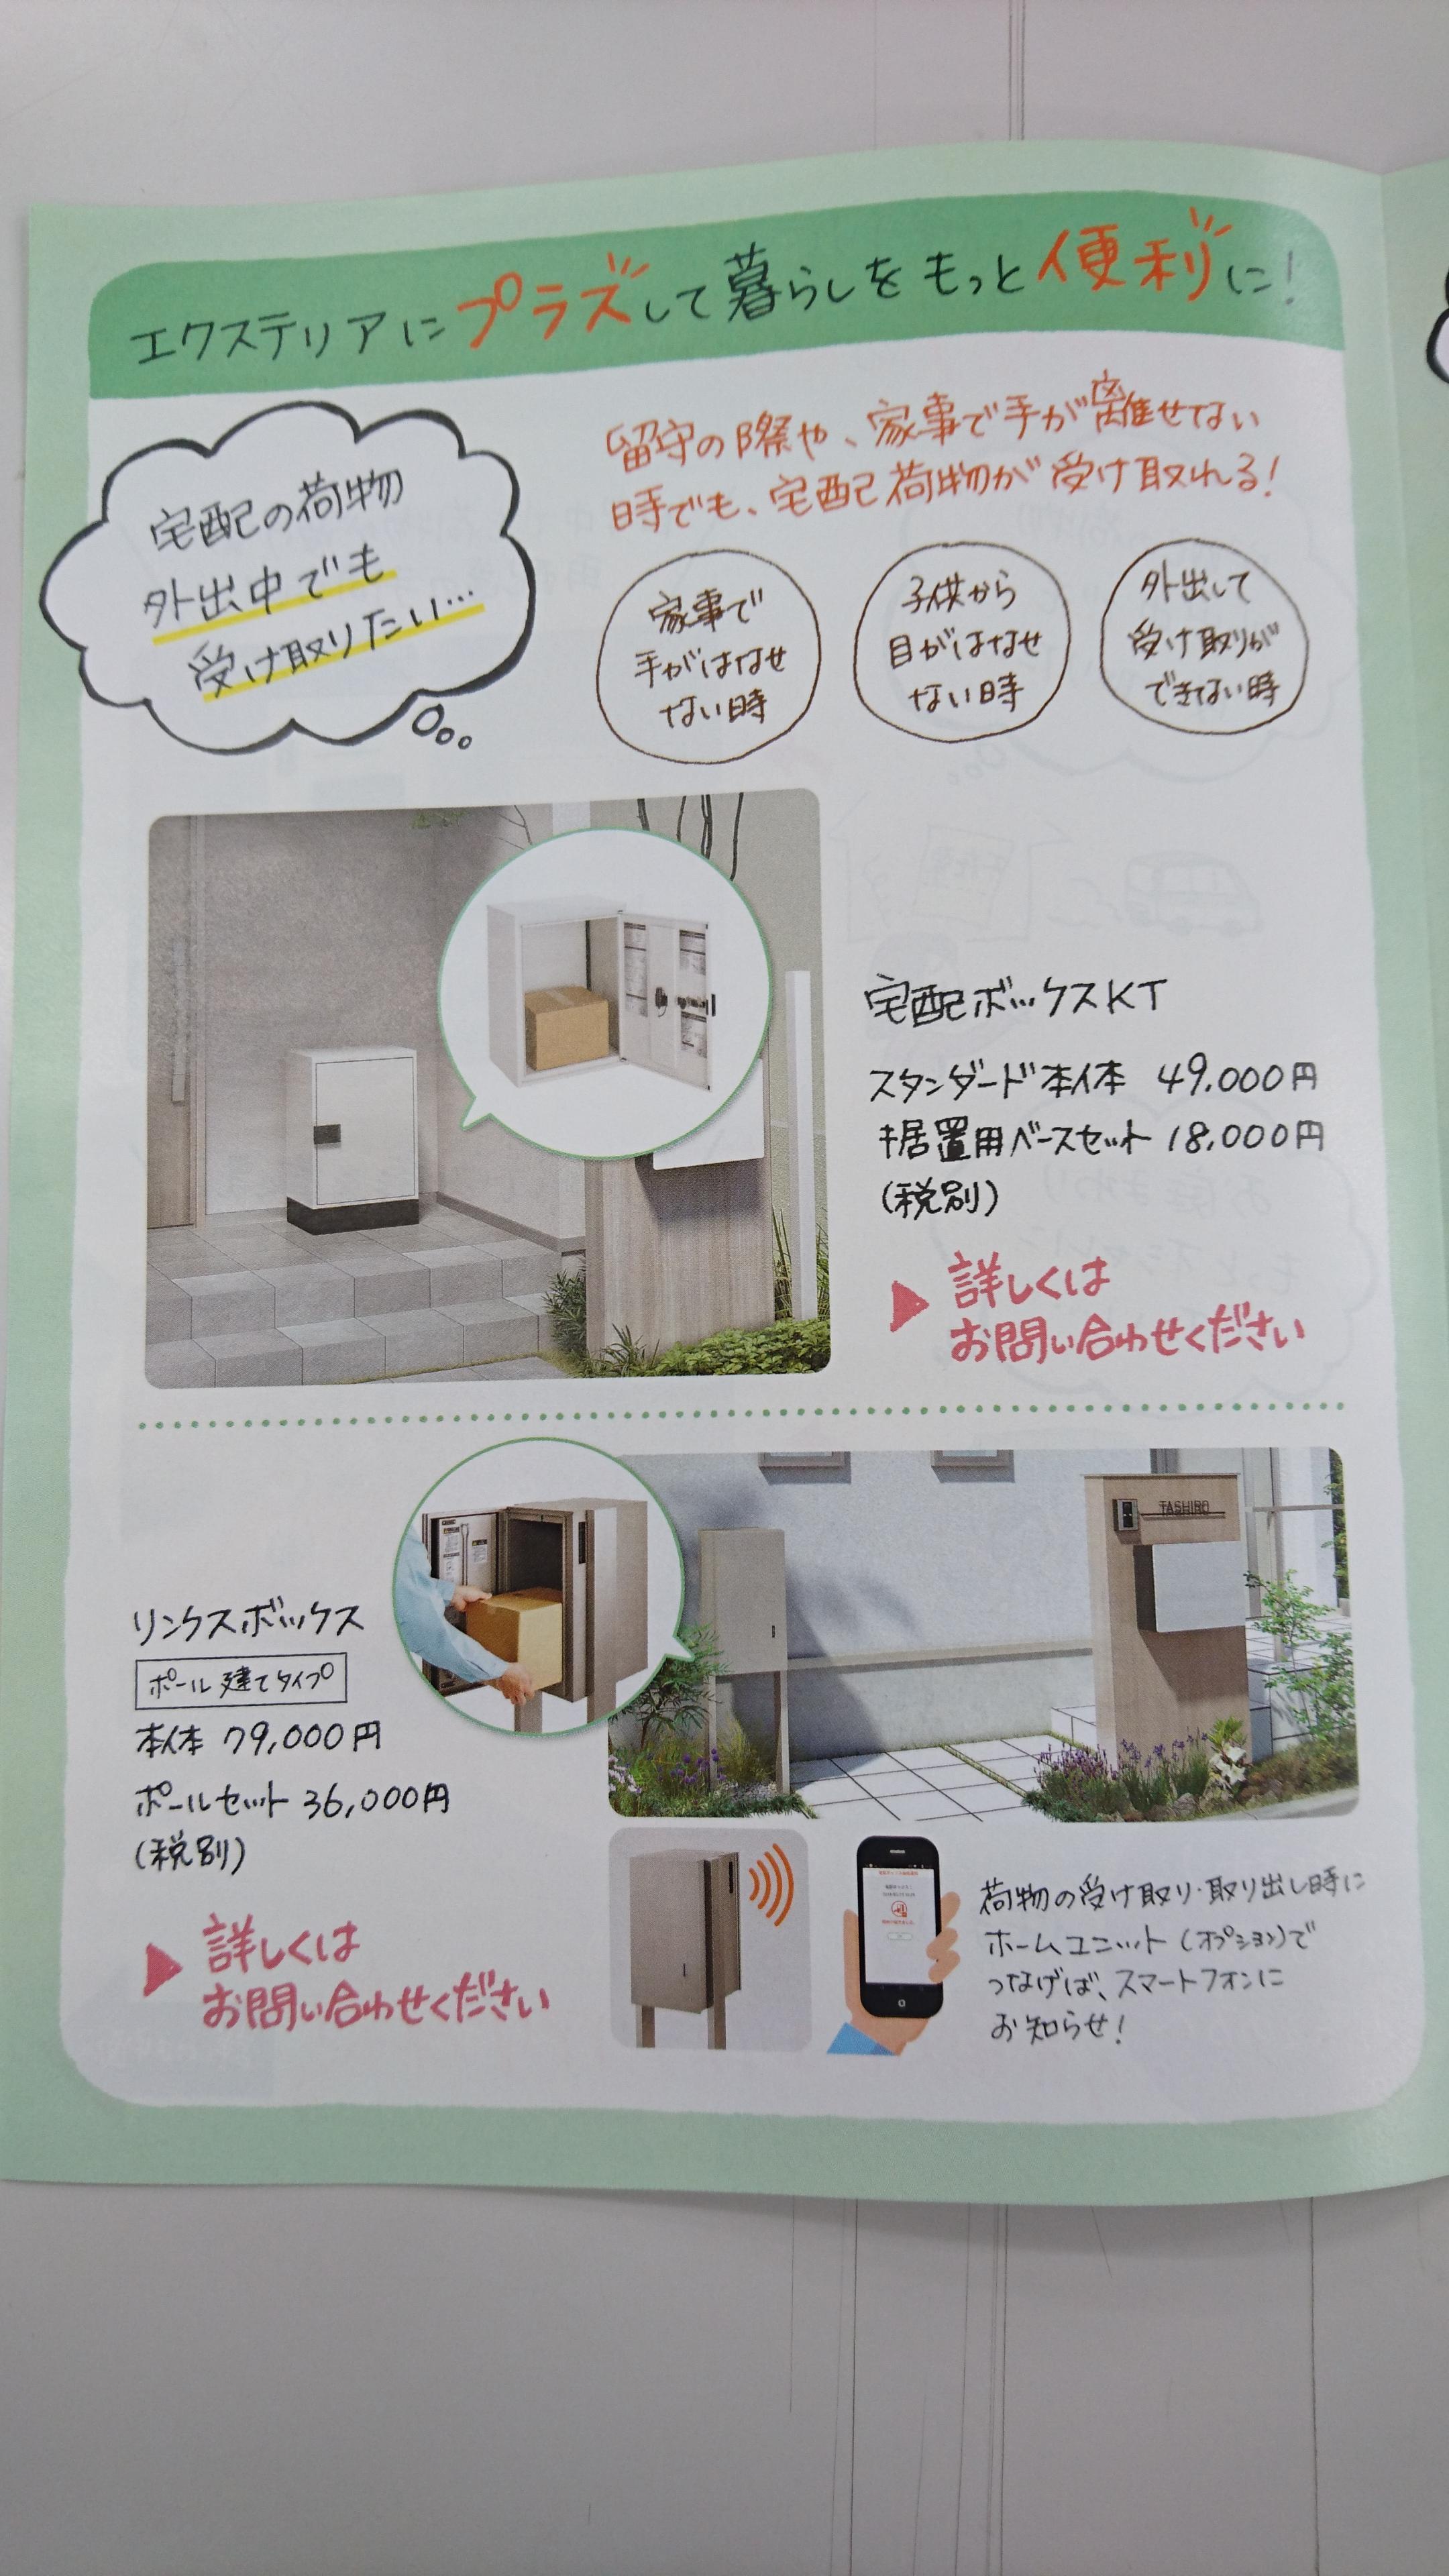 エクステリアにプラスして暮らしをもっと便利に!
宅配の荷物
外出中でも
受け取りたい…
留守の際や、家事で手が離せない
時でも、宅配荷物が受け取れる!
家事で
手がはなせ
ない時
子供から
目がはなせ
ない時
外出して
受け取りが
できない時
宅配ボックスKT
スタンダード本体 49,000円
据置用ベースセット 18,000円
(税別)
詳しくは
お問い合わせください
TASHIRO
リンクスボックス
ポール建てタイプ
本体 79,000円
ポールセット 36,000円
(税別)
詳しくは
お問い合わせください
荷物の受け取り・取り出し時に
ホームユニット(オプション)で
つなげば、スマートフォンに
お知らせ!